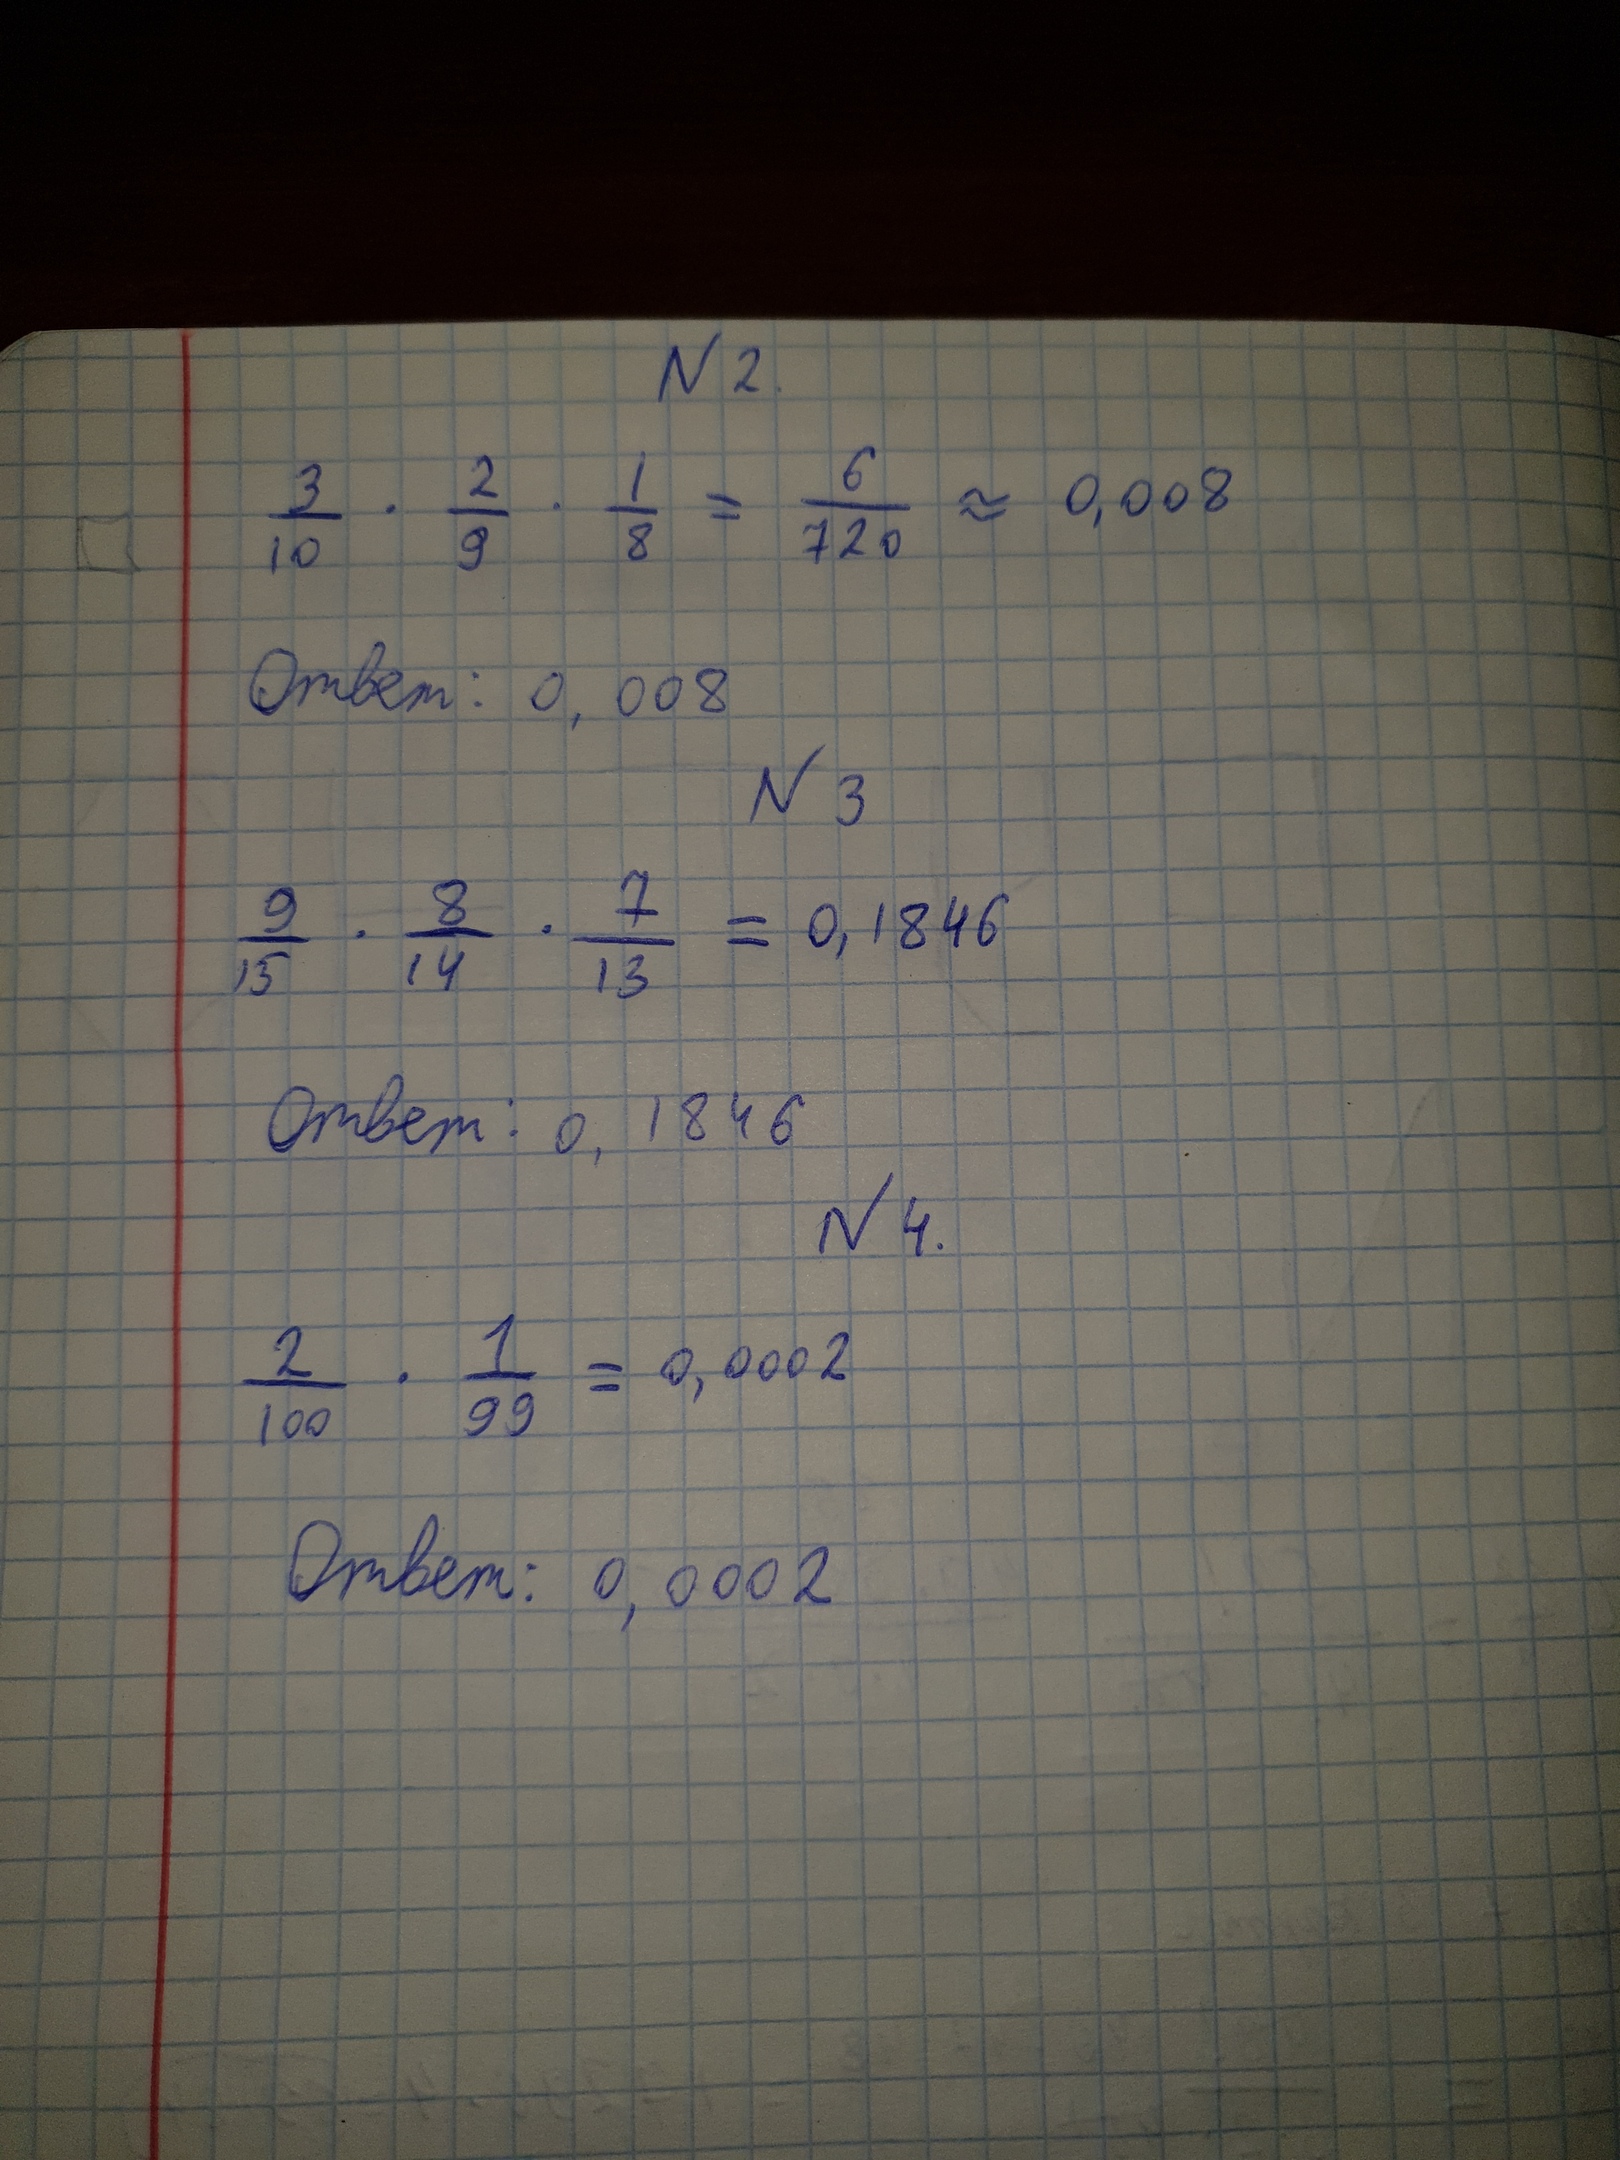 N 2.
3/10 · 2/9 · 1/8 = 6/720 ≈ 0,008
Ответ: 0,008
N 3
9/15 · 8/14 · 7/13 = 0,1846
Ответ: 0,1846
N 4.
2/100 · 1/99 = 0,0002
Ответ: 0,0002